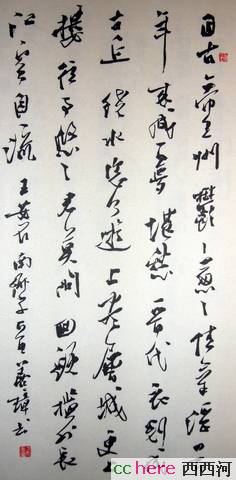 自古帝王州鬱々葱々佳氣浮四百
年来成一夢堪愁晋代衣冠成
古丘繞水恣行遊上盡層城更上
樓往事悠々君莫問回頭檻外長
江空自流王安石南鄉子
cchere 西西河